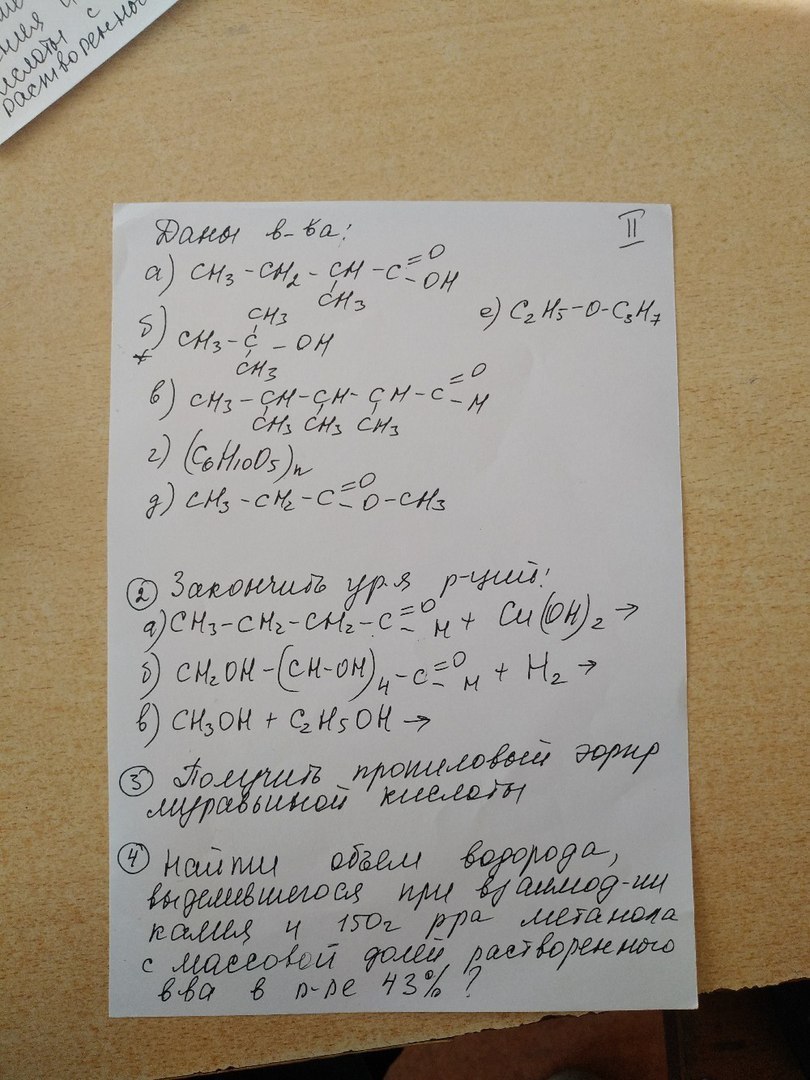 ния
ислоты с
растворенно
II
Даны в-ва:
а) CH3-CH2-CH-C=O
OH
CH3
е) C2H5-O-C3H7
б)
CH3
CH3-C-OH
CH3
в) CH3-CH-CH-CH-C=O
H
CH3 CH3 CH3
г) (C6H10O5)n
д) CH3-CH2-C=O
-O-CH3
2 Закончить ур-я р-ций:
а) CH3-CH2-CH2-C=O
H + Cu(OH)2 →
б) CH2OH-(CH-OH)4-C=O
H + H2 →
в) CH3OH + C2H5OH →
3 Получить пропиловый эфир
муравьиной кислоты
4 Найти объем водорода,
выделившегося при взаимод-ии
калия и 150г р-ра метанола
с массовой долей растворенного
в-ва в р-ре 43%?